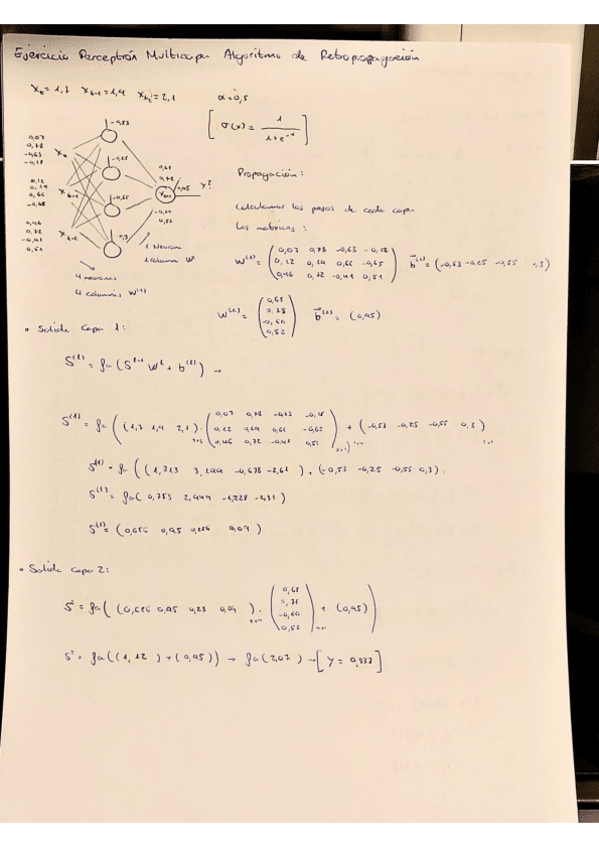 Ejercicio Perceptrón Multicapa Algoritmo de Retropropagación
Xk = 1,3 Xk-1 = 1,4 Xk-2 = 2,1 α = 0,5
[ σ(x) = 1 / (1 + e^-x) ]
-0,53
0,03
0,78
-0,63
-0,18
Xk
-0,25
0,68
0,78
0,12
0,14
0,66
-0,65
Xk-1
Xk+1
0,95
Y?
-0,55
-0,60
0,52
0,46
0,72
-0,41
0,51
Xk-2
0,3
1 Neurona
1 columna W
4 neuronas
4 columnas W(1)
Propagación:
Calculamos los pesos de cada capa
Las matrices:
W(1) = ( 0,03 0,78 -0,63 -0,18
0,12 0,14 0,66 -0,65
0,46 0,72 -0,41 0,51 ) b(1) = (-0,53 -0,25 -0,55 0,3)
W(2) = ( 0,68
0,78
-0,60
0,52 ) b(2) = (0,95)
• Salida Capa 1:
S(l) = fa ( S l-1 W l + b(l) ) →
S(1) = fa ( (1,3 1,4 2,1) · ( 0,03 0,78 -0,63 -0,18
0,12 0,14 0,66 -0,65
0,46 0,72 -0,41 0,51 ) + (-0,53 -0,25 -0,55 0,3)
S(1) = fa ( (1,313 -0,678 ) + (-0,53 -0,25 -0,55 0,3)
S(1) = fa ( 0,783 2,944 -1,228 )
S(1) = (0,686 0,95 0,09 )
• Salida capa 2:
S2 = fa ( (0,686 0,95 0,23 0,09 ) · ( 0,68
0,78
-0,60
0,52 ) + (0,95) )
S2 = fa ( (1,12 ) + (0,95) ) → fa (2,07) → [ Y = 0,888 ]